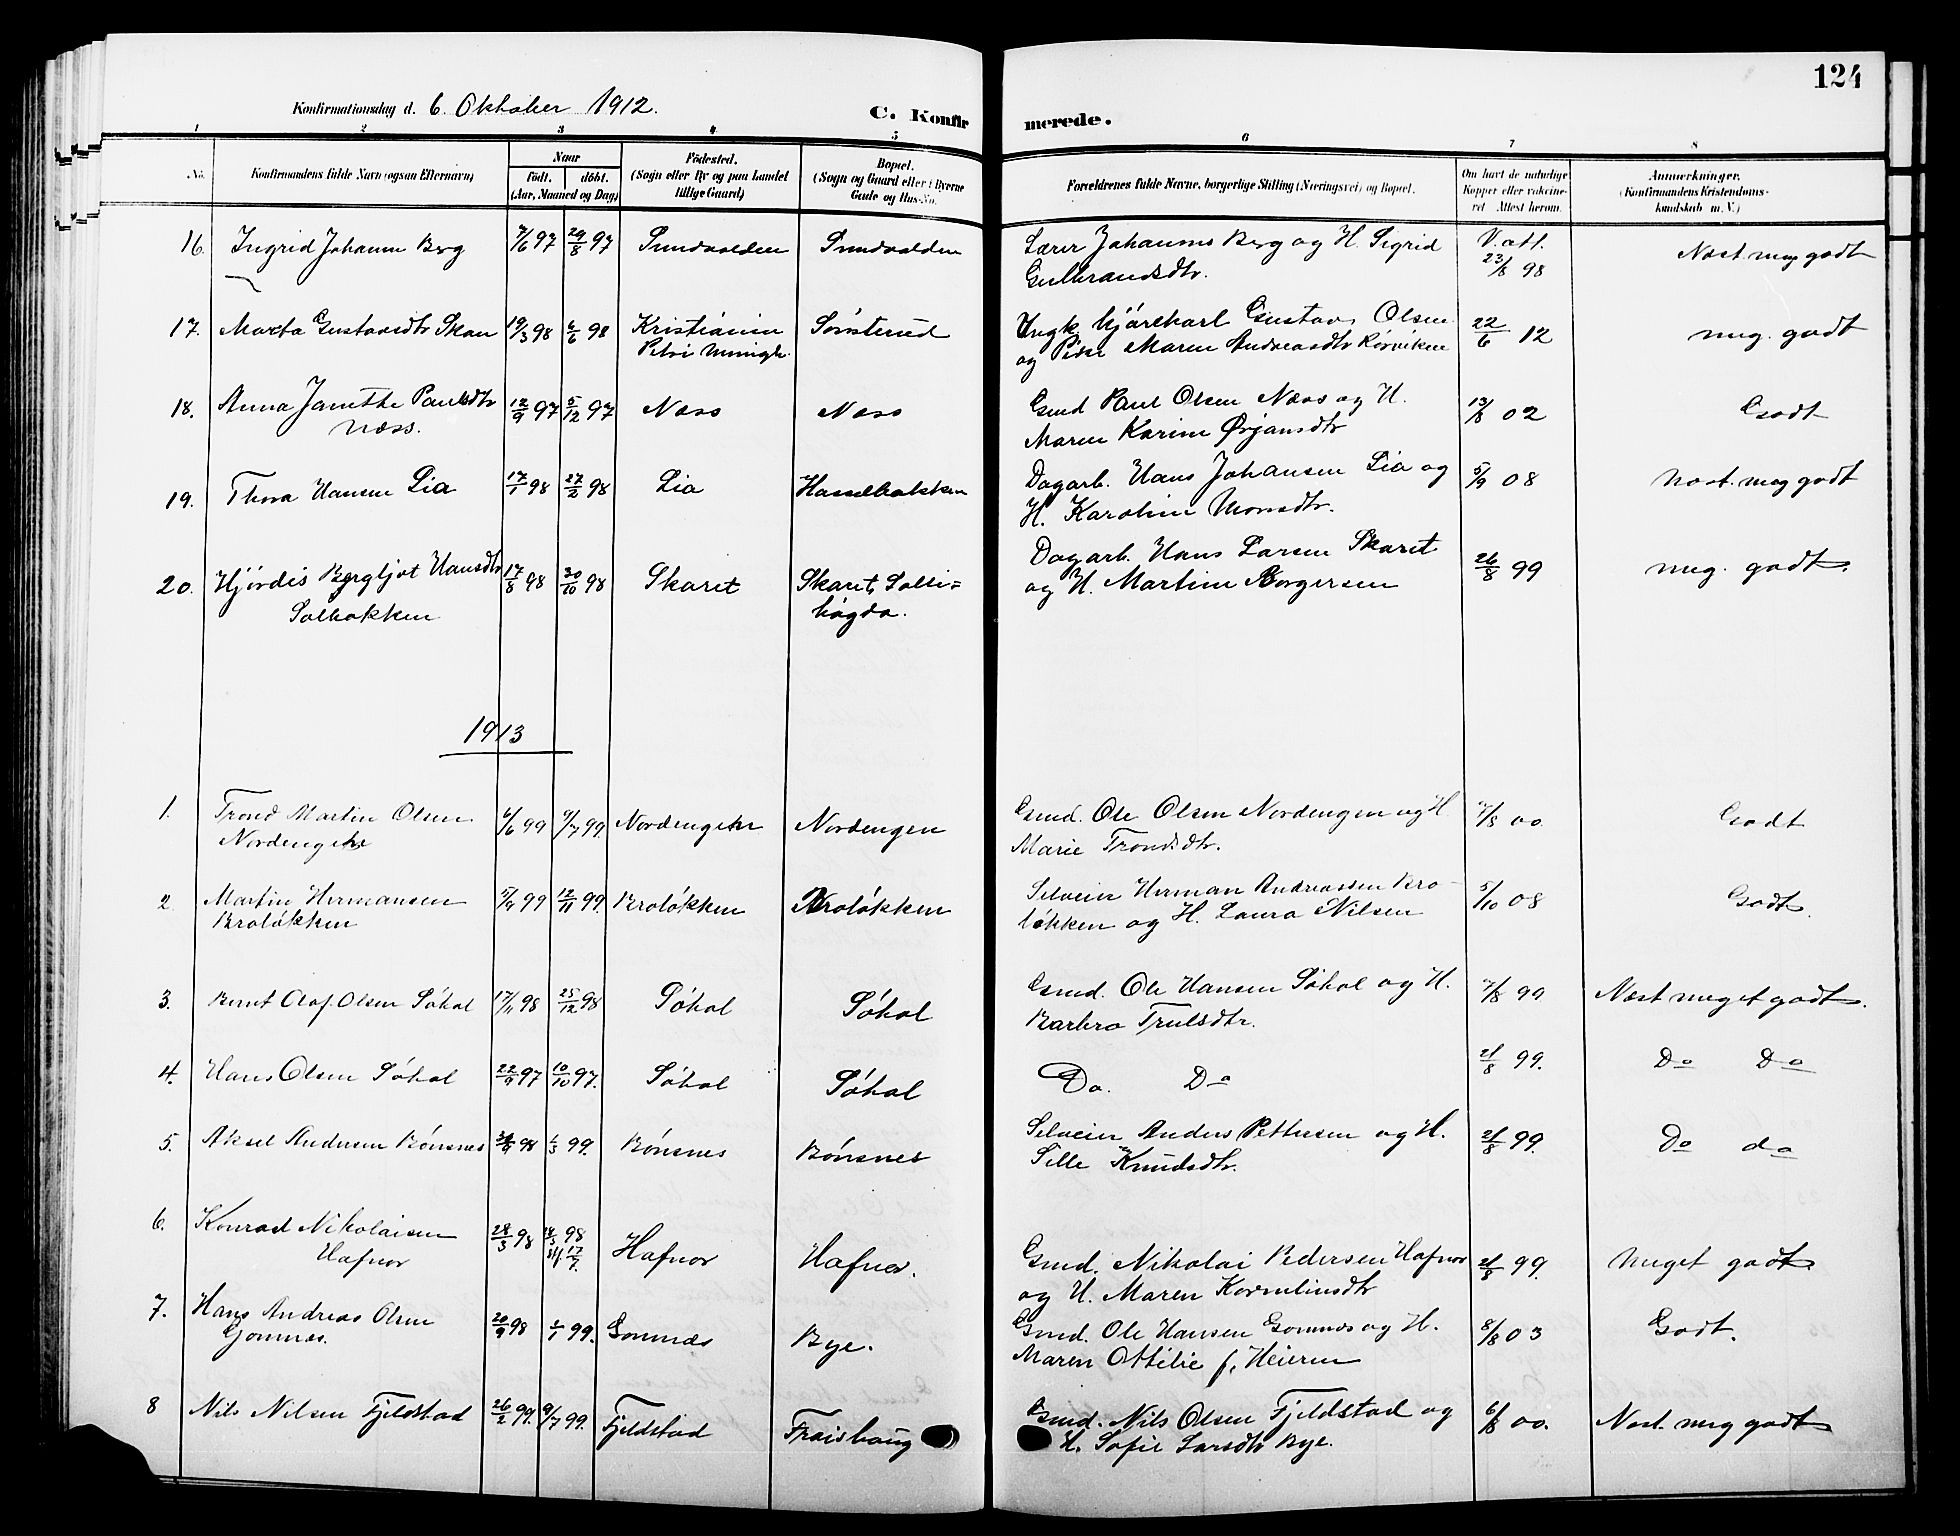 124
Konfirmationsdag d. 6. Oktober 1912.
C. Konfirmerede.
1 2 3 4 5 6 7 8
No.
Konfirmandens fulde Navn (ogsaa Efternavn)
Naar
födt. döbt.
(Aar, Maaned og Dag)
Födested.
(Sogn eller By og paa Landet
tillige Gaard)
Bopæl.
(Sogn og Gaard eller i Byerne
Gade og Hus-No.
Forældrenes fulde Navne, borgerlige Stilling (Næringsvei) og Bopæl.
Om havt de naturlige
Kopper eller vakcine-
ret Attest herom.
Anmerkninger.
(Konfirmandens Kristendoms-
kundskab m. V.)
16. Ingrid Johanne Berg 7/6 97 29/8 97 Sundvolden Sundvolden Lærer Johannes Berg og H. Sigrid V. att. Næst. meg godt
Gulbrandsdtr. 23/8 98
17. Marta Gustavsdtr Skau 19/3 98 6/6 98 Kristiania Sönsterud Ungk. Gustav Olsen 22/6 12 meg. godt
Petri menigh. og Pike Maren Andreasdtr Rörviken
18. Anna Janethe Paulsdtr 12/9 97 5/12 97 Næss Næss Gmd Paul Olsen Næss og H. 13/8 02 Godt
Næss. Maren Karine Ørjansdtr
19. Thora Hansen Lia 17/1 98 27/2 98 Lia Hasselbakken Dagarb. Hans Johansen Lia og 5/9 08 Næst. meg godt
H. Karoline Monsdtr.
20. Hjördis Bergljot Hansdtr 17/8 98 30/10 98 Skaret Skaret, Solli= Dagarb. Hans Larsen Skaret 26/8 99 meg. godt.
Solbakken högda. og H. Martine Borgersen
1913
1. Trond Martin Olsen 6/6 99 9/7 99. Nordengen Nordengen Gmd. Ole Olsen Nordengen og H. 7/8 00. Godt
Nordengen Marie Trondsdtr.
2. Martin Hermansen 5/9 99 12/11 99. Brolökken Brolökken Selveier Herman Andreassen Bro- 5/10 08 Godt.
Brolökken lökken og H. Laura Nilsen
3. Bernt Olaf Olsen Söhol 17/11 98 25/12 98 Söhol Söhol Gmd. Ole Hansen Söhol og H. 7/8 99 Næst meget godt.
Barbro Trulsdtr.
4. Hans Olsen Söhol 22/9 97 10/10 97. Söhol Söhol Do. Do 21/8 99. Do Do
5. Aksel Andersen Bönsnes 98 99. Bönsnes Bönsnes Selveier Anders Pettersen og H. 21/8 99. Do do
Sille Knudsdtr.
6. Konrad Nikolaisen 28/3 98 98 Hafnor Hafnor. Gmd. Nikolai Pedersen Hafnor 21/8 99. Meget godt.
Hafnor 17/7. og H. Maren Korneliusdtr
7. Hans Andreas Olsen 20/9 98 1/1 99. Gomnæs Bye. Gmd. Ole Hansen Gomnæs og H. 8/8 03 Godt.
Gomnæs. Maren Ottilie f. Heieren
8 Nils Nilsen Fjeldstad 26/2 99. 9/7 99. Fjeldstad Fraishaug Gmd. Nils Olsen Fjeldstad og 6/8 00. Næst. meg godt
H. Sofie Larsdtr Bye.